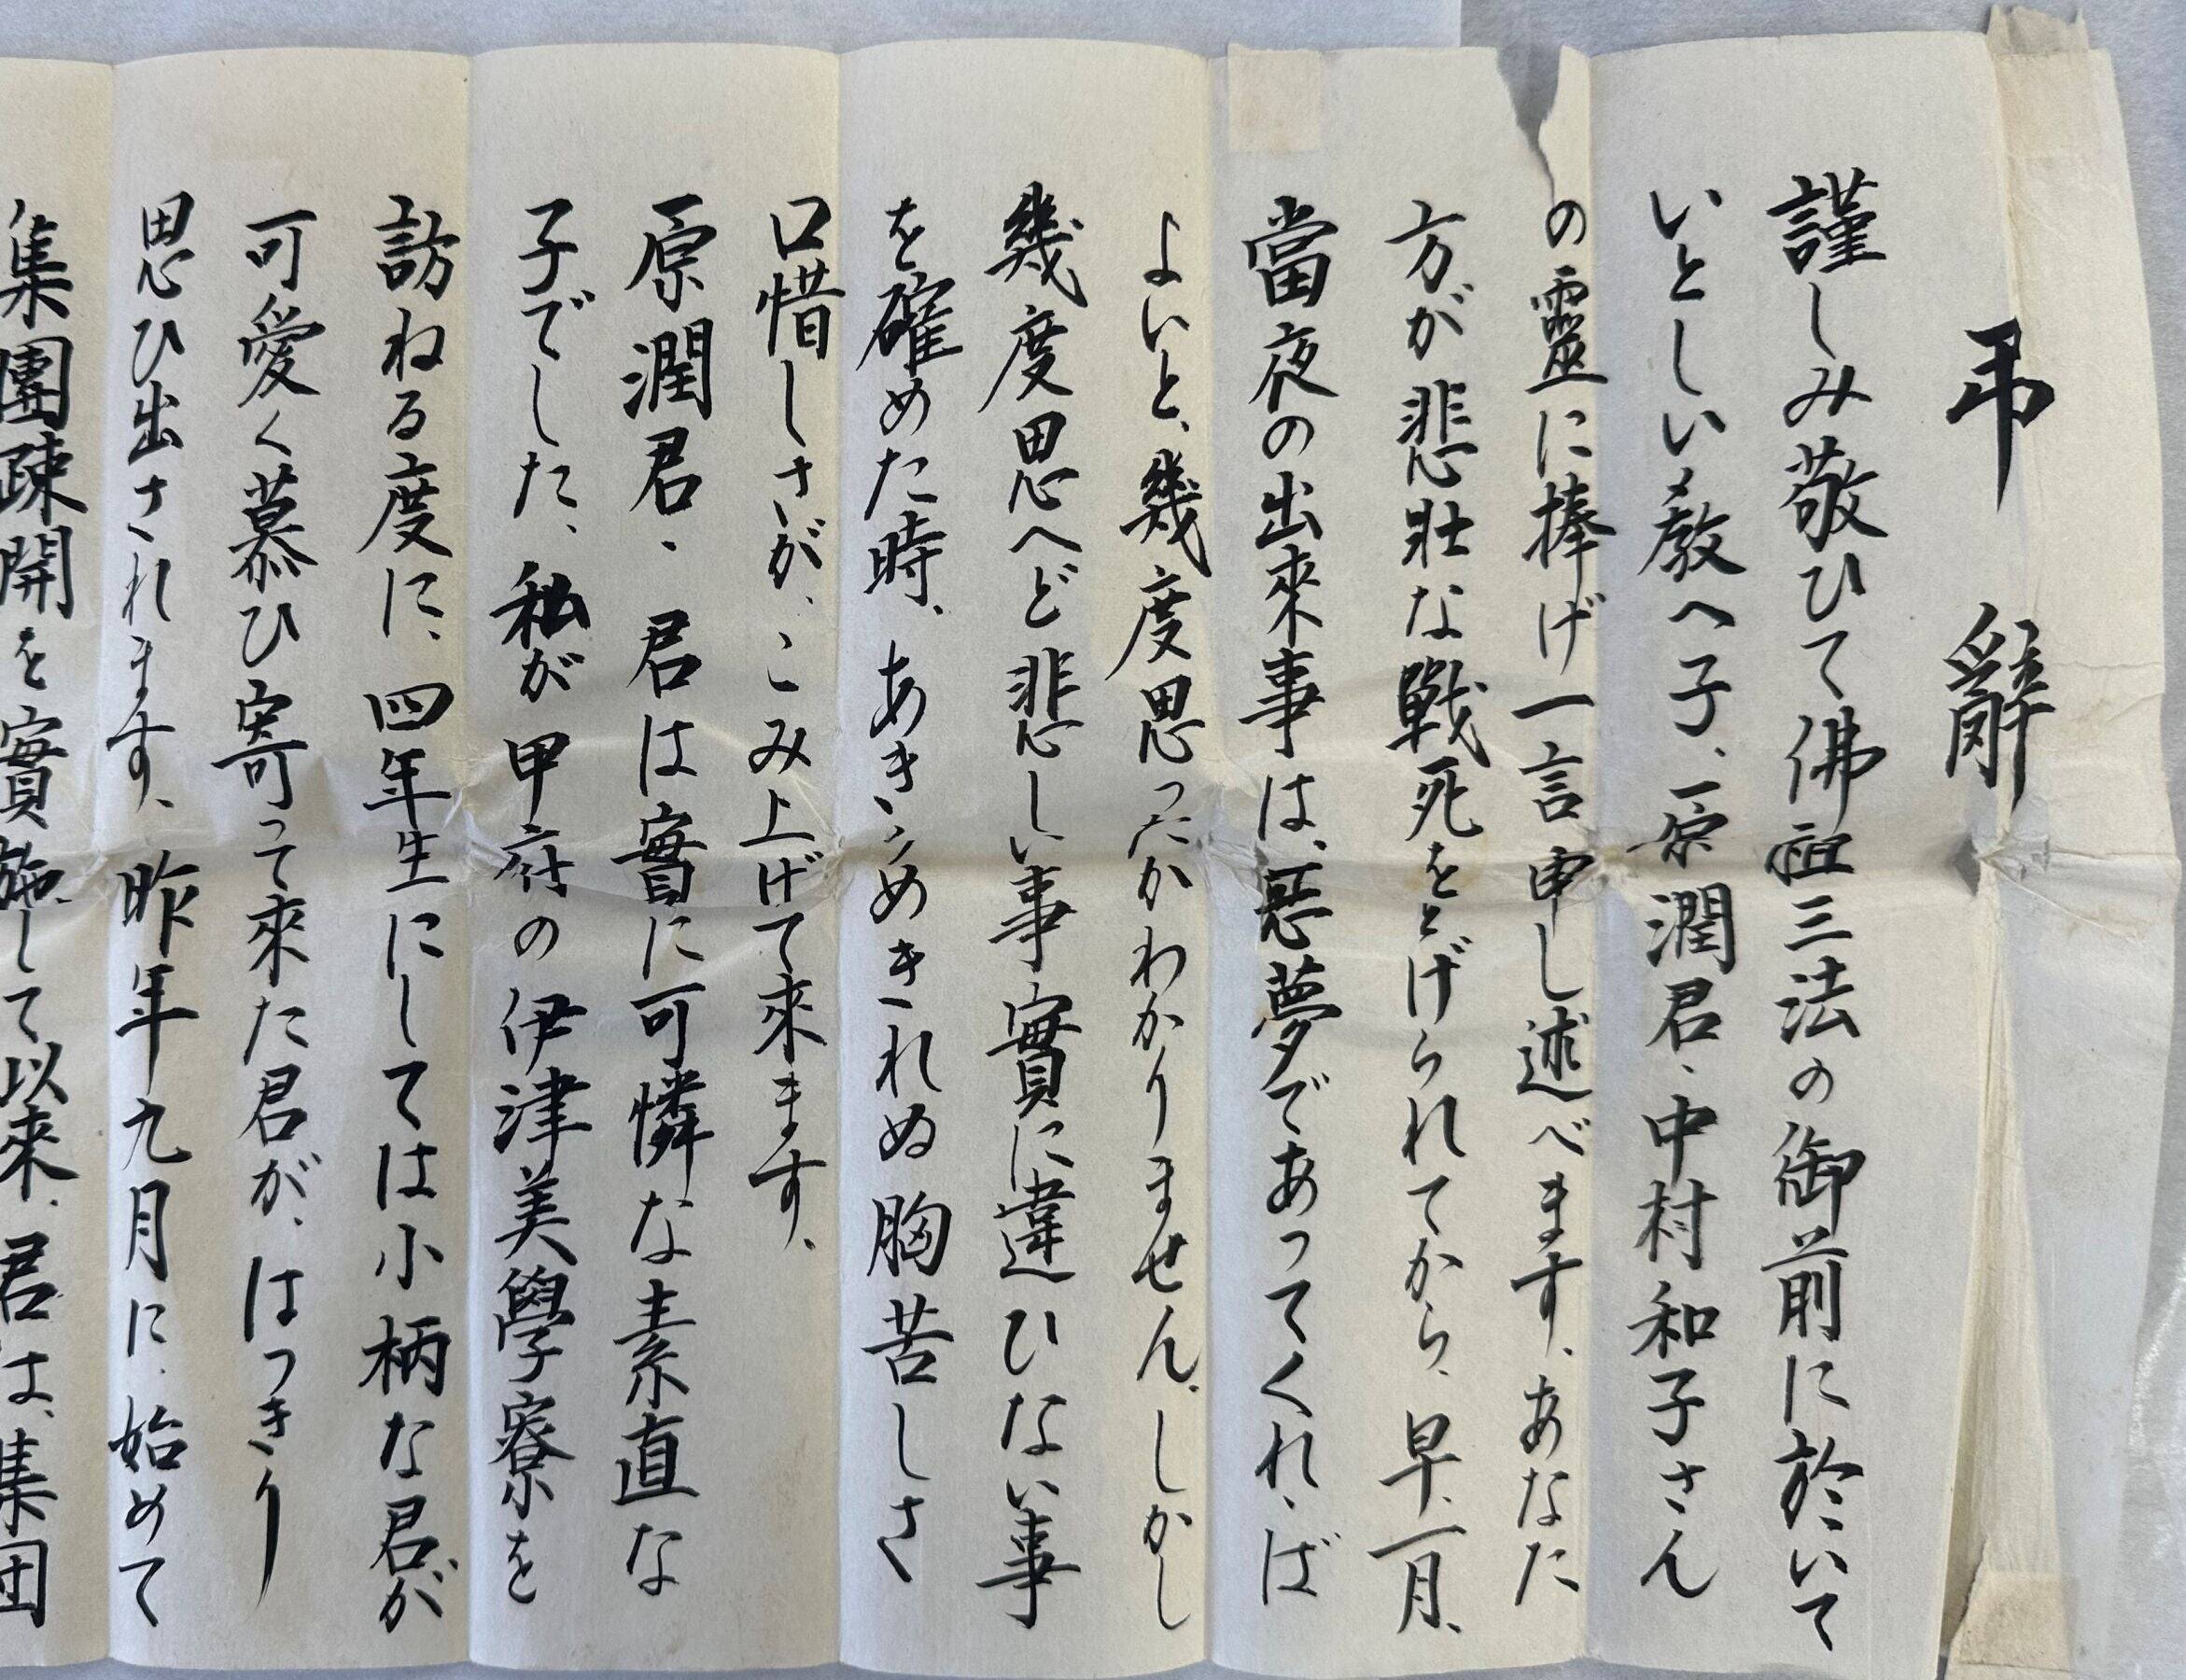 弔辭
謹しみ敬ひて佛祖三法の御前に於いて
いとしい教へ子、原潤君、中村和子さん
の靈に捧げ一言申し述べます、あなた
方が悲壮な戰死をとげられてから、早、一月、
當夜の出來事は、悪夢であってくれゝば
よいと、幾度思ったかわかりません、しかし
幾度思へど悲しい事實に違ひない事
を確めた時、あきらめきれぬ胸苦しさ
口惜しさが、こみ上げて來ます、
原潤君、君は實に可憐な素直な
子でした、私が甲府の伊津美學寮を
訪ねる度に、四年生にしては小柄な君が
可愛く慕ひ寄って来た君が、はっきり
思ひ出されます、昨年九月に、始めて
集團疎開を實施して以来、君は、集団